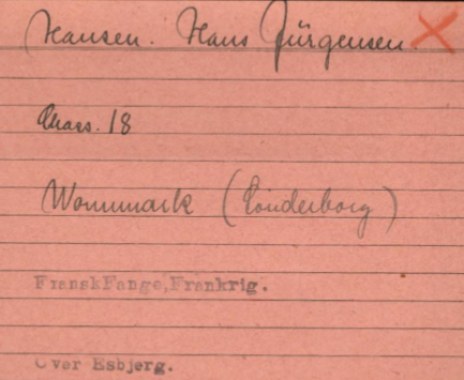 Hansen. Hans Jürgensen
Chass. 18
Wommark (Sonderborg)
FranskFange,Frankrig.
Over Esbjerg.